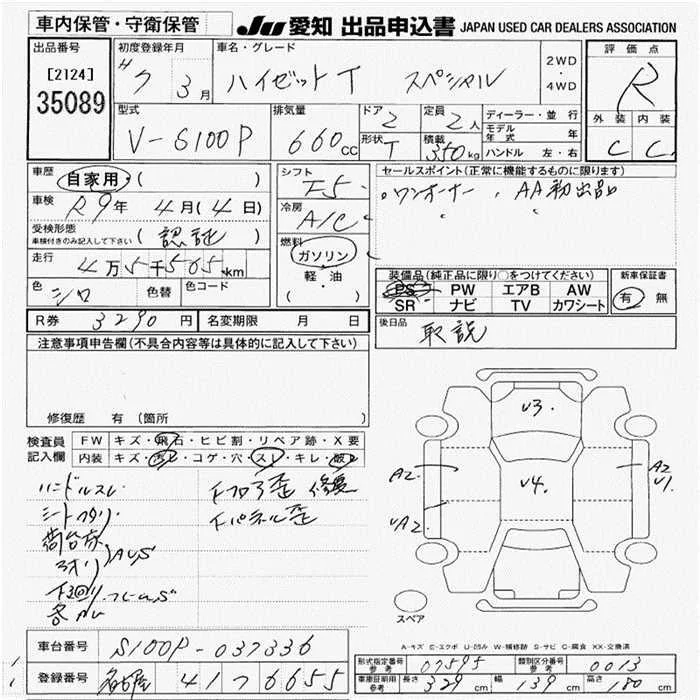 車内保管・守衛保管
JU 愛知 出品申込書 JAPAN USED CAR DEALERS ASSOCIATION
出品番号
[2124]
35089
初度登録年月
H 7 3 月
車名・グレード
ハイゼットT スペシャル
2WD
・
4WD
評価点
R
外装 内装
C C
型式
V-S100P
排気量
660 cc
ドア 2
形状 T
定員 2人
積載 350 kg
ディーラー・並行
モデル年式 年
ハンドル 左・右
車歴
自家用・( )
車検
R9年 4月(4日)
受検形態
車検付きのみ記入して下さい
(認証)
走行
4万5千505km
色 シロ 色替 色コード
シフト F5
冷房 A/C
燃料
ガソリン
軽・油
( )
セールスポイント(正常に機能するものに限ります)
ワンオーナー、 AA初出品
装備品(純正品に限り○をつけてください)
PS PW エアB AW
SR ナビ TV カワシート
新車保証書
有 無
後日品
取説
R券 3290円 名変期限 月 日
注意事項申告欄(不具合内容等は具体的に記入して下さい)
修復歴 有(箇所
検査員
記入欄
FW キズ・飛石・ヒビ割・リペア跡・X要
内装 キズ・汚レ・コゲ・穴・スレ・キレ・破レ
ハンドルスレ
シートヘタリ
荷台床
アオリ AUS
下回り
各
下フロア歪 修復
下パネル歪
V3
V4
A2
UA2
A2
U1
スペア
A-キズ E-エクボ U-凹ミ W-補修跡 S-サビ C-腐食 XX-交換済
車台番号 S100P-037336
登録番号 名古屋 41 つ 6655
型式指定番号
参考
07595
類別区分番号
参考
0013
車庫証明用
参考
長さ 329 cm 幅 139 cm 高さ 180 cm